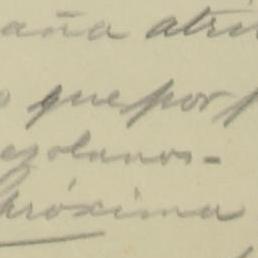 aña atri
que por p
ezolanos-
próxima